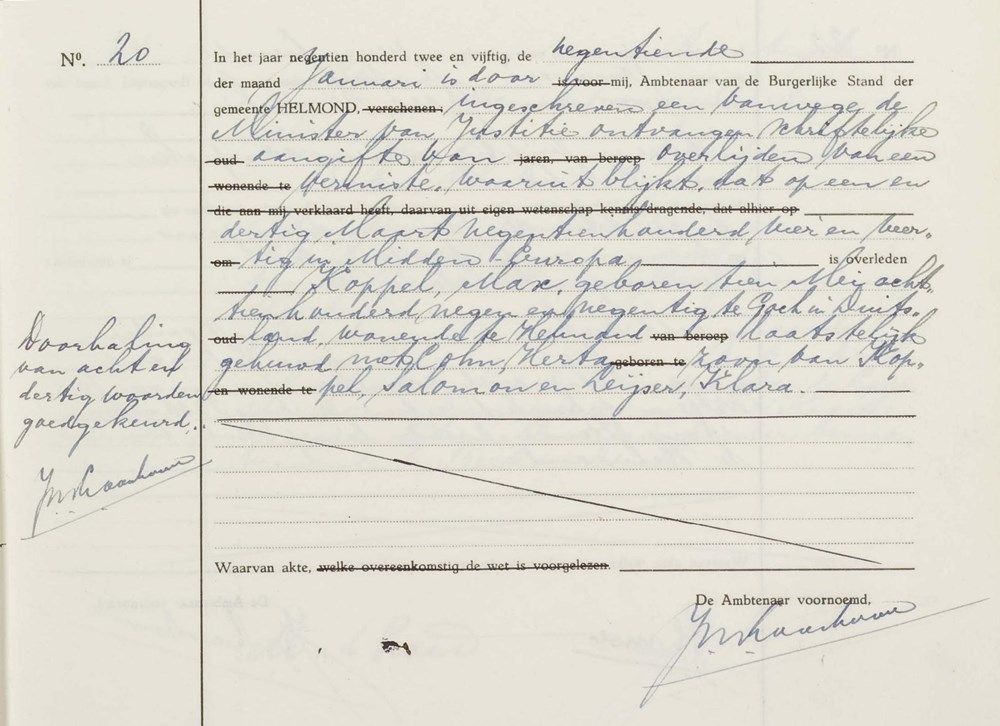 Nº. 20
In het jaar negentien honderd twee en vijftig, de negentiende
der maand Januari is door is voor mij, Ambtenaar van de Burgerlijke Stand der
gemeente HELMOND, verschenen: ingeschreven een vanwege de
Minister van Justitie ontvangen schriftelijke
oud aangifte van jaren, van beroep overlijden van een
wonende te vermiste, waaruit blijkt, dat op een en
die aan mij verklaard heeft, daarvan uit eigen wetenschap kennis dragende, dat alhier op
dertig Maart negentienhonderd vier en veer-
om tig in Midden-Europa is overleden
Koppel, Max, geboren tien Mei acht-
tienhonderd negen en negentig te Goch in Duits-
oud land, wonende te Helmond van beroep laatstelijk
gehuwd met Cohn, Herta geboren te zoon van Kop-
en wonende te pel, Salomon en Leijser, Klara.
Doorhaling
van acht en
dertig woorden
goedgekeurd.
Waarvan akte, welke overeenkomstig de wet is voorgelezen.
De Ambtenaar voornoemd,